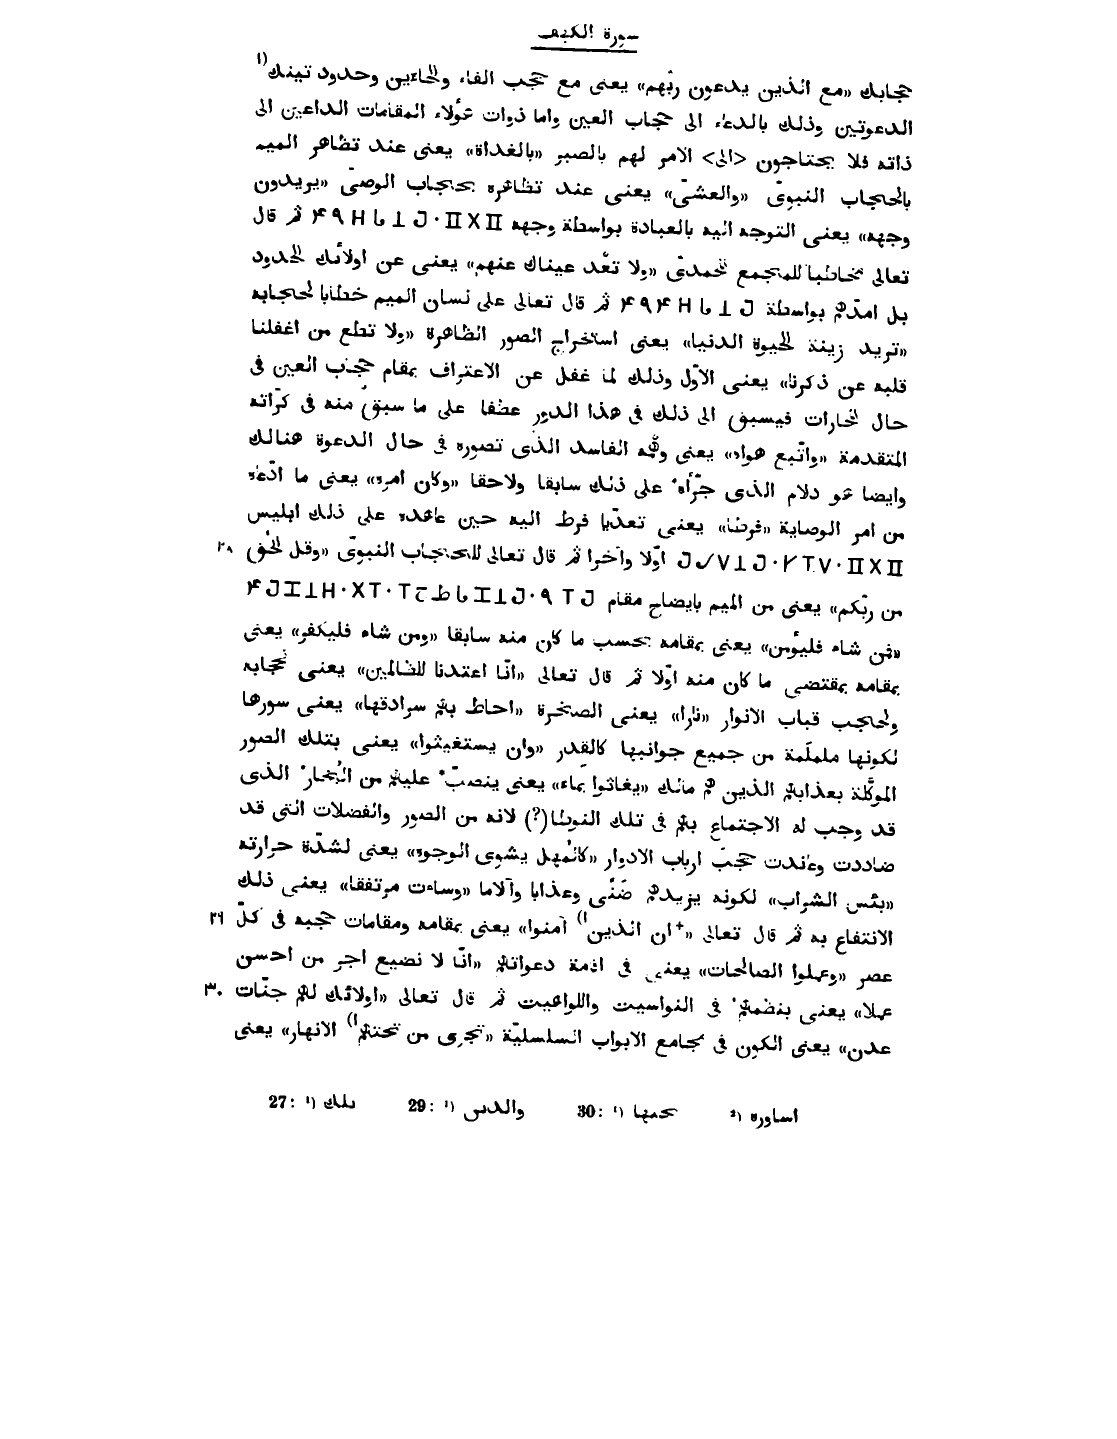 سورة الكهف
حجابك «مع الذين يدعون ربّهم» يعنى مع حجب الفاء والحاءين وحدود تينك(١
الدعوتين وذلك بالدعاء الى حجاب العين واما ذوات هؤلاء المقامات الداعين الى
ذاته فلا يحتاجون <الى> الامر لهم بالصبر «بالغداة» يعنى عند تظاهر الميم
بالحجاب النبوىّ «والعشىّ» يعنى عند تظاهره بحجاب الوصىّ «يريدون
وجهه» يعنى التوجه اليه بالعبادة بواسطة وجهه ثم قال
تعالى مخاطبا للمجمع المحمدىّ «ولا تعْد عيناك عنهم» يعنى عن اولائك الحدود
بل امدّهم بواسطة ثم قال تعالى على لسان الميم خطابا لحجابه
«تريد زينة الحيوة الدنيا» يعنى استخراج الصور الظاهرة «ولا تطع من اغفلنا
قلبه عن ذكرنا» يعنى الاوّل وذلك لما غفل عن الاعتراف بمقام حجاب العين فى
حال فيسبق الى ذلك فى هذا الدور عطفا على ما سبق منه فى كرّاته
المتقدمة «واتّبع هواه» يعنى وهمه الفاسد الذى تصوره فى حال الدعوة هنالك
وايضا هو دلام الذى جرّأه على ذلك سابقا ولاحقا «وكان امره» يعنى ما ادّعاه
من امر الوصاية «فرطا» يعنى تعدّيا فرط اليه حين عاهده على ذلك ابليس
اوّلا وآخرا ثم قال تعالى للحجاب النبوىّ «وقل الحق ٢٨
من ربّكم» يعنى من الميم بايضاح مقام
«فمن شاء فليؤمن» يعنى بمقامه بحسب ما كان منه سابقا «ومن شاء فليكفر» يعنى
بمقامه بمقتضى ما كان منه اوّلا ثم قال تعالى «انّا اعتدنا للظالمين» يعنى لحجابه
ولحجب قباب الانوار «نارا» يعنى الصخرة «احاط بهم سرادقها» يعنى سورها
لكونها ململمة من جميع جوانبها كالقدر «وان يستغيثوا» يعنى بتلك الصور
الموكّلة بعذابهم الذين هم مالك «يغاثوا بماء» يعنى ينصبّ عليهم من البخار الذى
قد وجب له الاجتماع بهم فى تلك (?) لانه من الصور والفضلات التى قد
ضاددت وعاندت حجب ارباب الادوار «كالمهل يشوى الوجوه» يعنى لشدّة حرارته
«بئس الشراب» لكونه يزيدهم ضَنًى وعذابا وآلاما «وساءت مرتفقا» يعنى ذلك
الانتفاع به ثم قال تعالى «+ان الذين(١ آمنوا» يعنى بمقامه ومقامات حجبه فى كلّ ٢٩
عصر «وعملوا الصالحات» يعنى فى ائمة دعواتهم «انّا لا نضيع اجر من احسن
عملا» يعنى بنضمهم فى النواسيت واللواهيت ثم قال تعالى «اولائك لهم جنّات ٣٠
عدن» يعنى الكون فى مجامع الابواب السلسليّة «تجرى من تحتهم(١ الانهار» يعنى
27: ١) تلك 29: ١) والذين 30: ١) تحتها ٢) اساوره